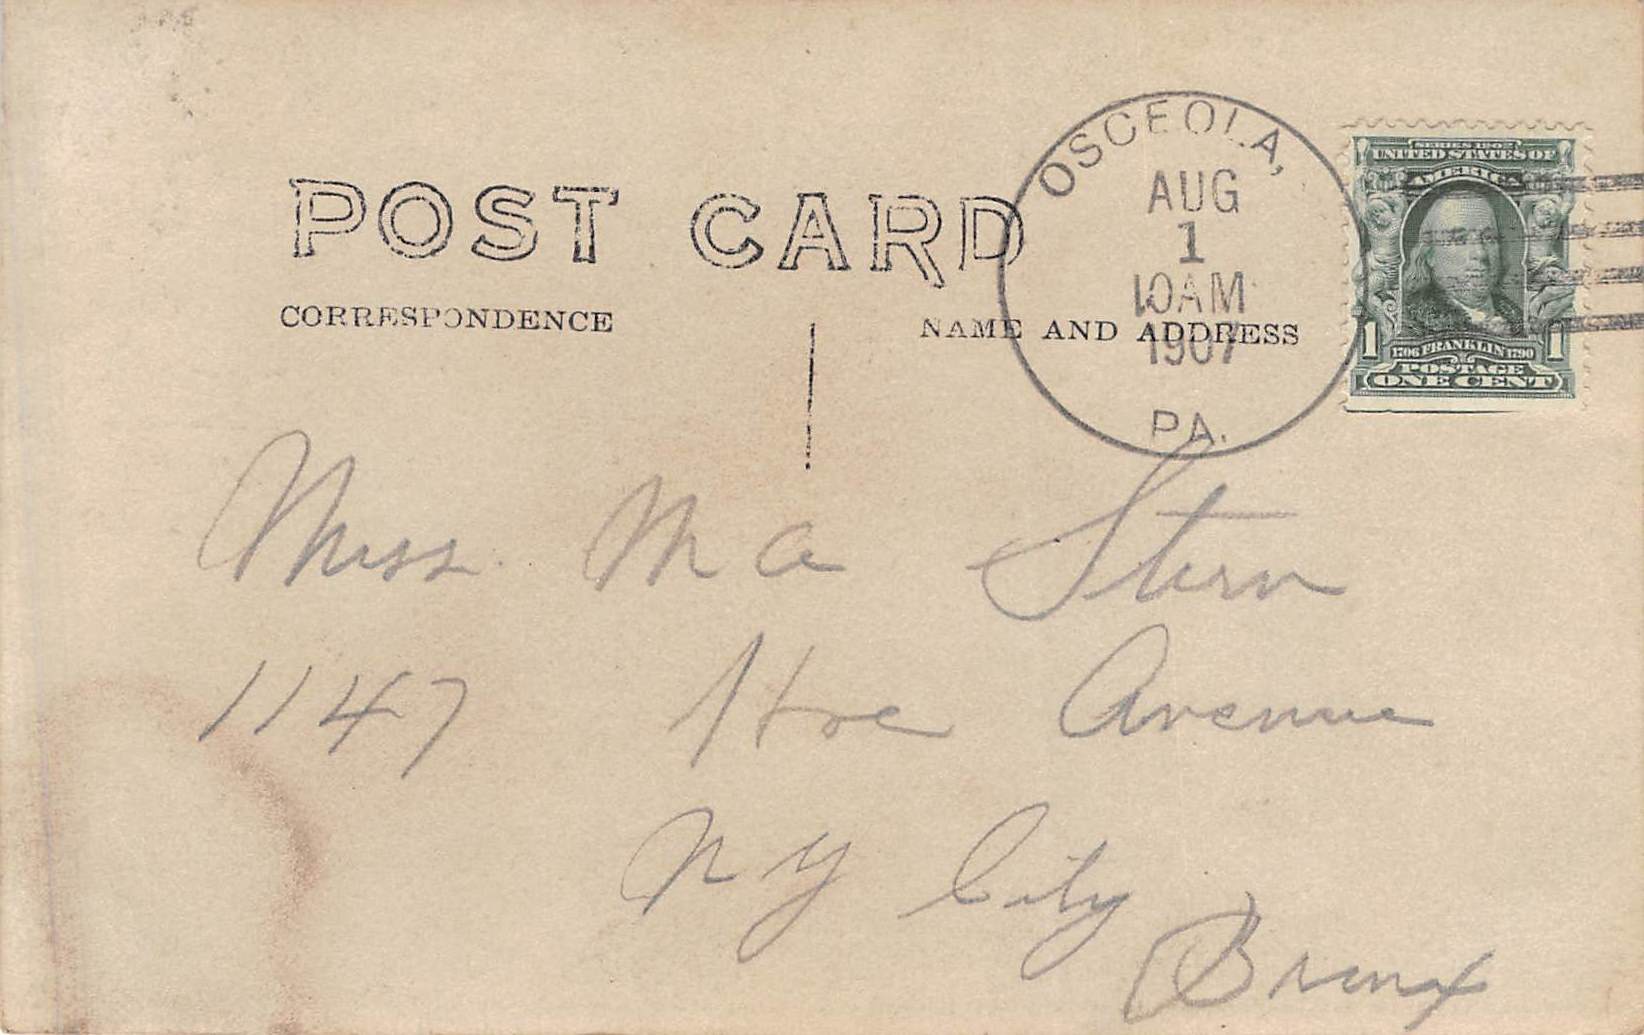 POST CARD
CORRESPONDENCE
NAME AND ADDRESS
OSCEOLA,
AUG
1
10AM
1907
PA.
SERIES 1902
UNITED STATES OF
AMERICA
1 1706 FRANKLIN 1790 1
POSTAGE
ONE CENT
Miss. M A Stern
1147 Hoe Avenue
N Y City
Bronx